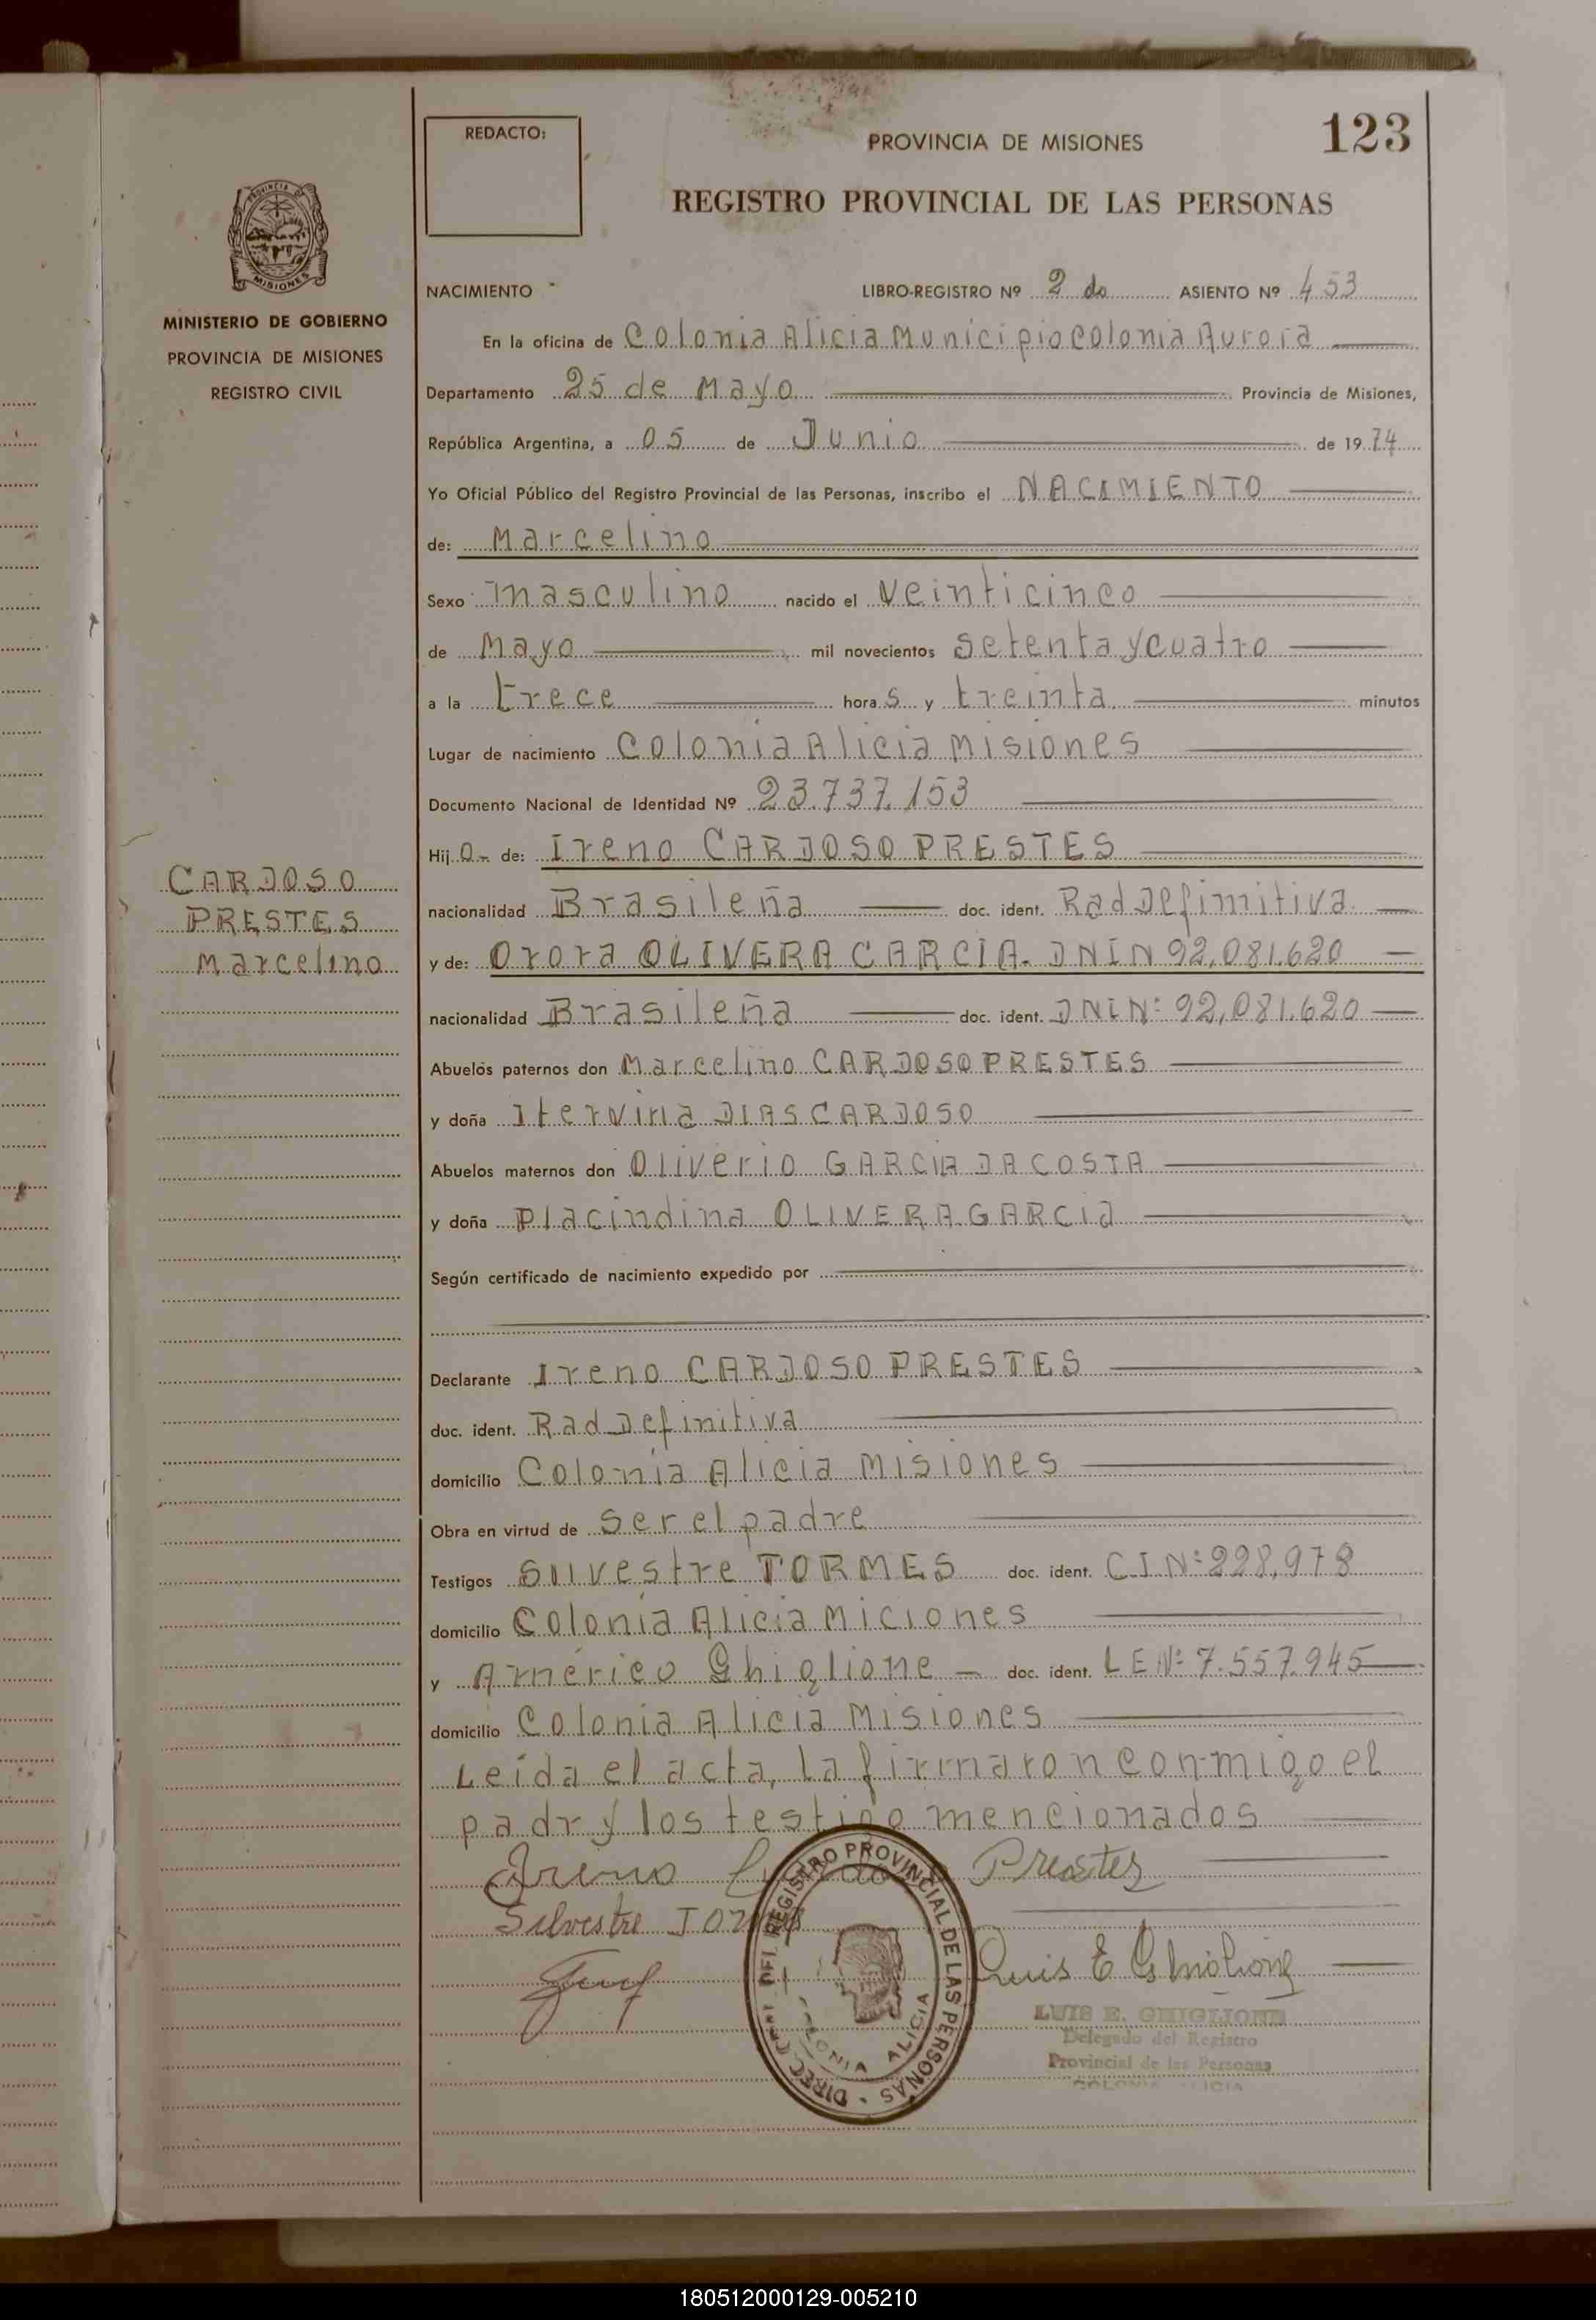 REDACTO:
PROVINCIA DE MISIONES
123
REGISTRO PROVINCIAL DE LAS PERSONAS
PROVINCIA DE
MISIONES
MINISTERIO DE GOBIERNO
PROVINCIA DE MISIONES
REGISTRO CIVIL
NACIMIENTO - LIBRO-REGISTRO Nº 2 do ASIENTO Nº 453
En la oficina de Colonia Alicia Municipio Colonia Aurora
Departamento 25 de Mayo Provincia de Misiones,
República Argentina, a 05 de Junio de 1974
Yo Oficial Público del Registro Provincial de las Personas, inscribo el NACIMIENTO
de: Marcelino
Sexo masculino nacido el veinticinco
de Mayo mil novecientos setenta y cuatro
a la trece hora s y treinta minutos
Lugar de nacimiento Colonia Alicia Misiones
Documento Nacional de Identidad Nº 23.737.153
Hij o- de: Ireno CARDOSO PRESTES
CARDOSO
PRESTES
Marcelino
nacionalidad Brasileña doc. ident. Rad Definitiva
y de: Orora OLIVERA CARCIA. DNIN 92,081.620
nacionalidad Brasileña doc. ident. DNIN: 92,081.620
Abuelos paternos don Marcelino CARDOSO PRESTES
y doña Itervina DIAS CARDOSO
Abuelos maternos don Oliverio GARCIA DA COSTA
y doña Placindina OLIVERA GARCIA
Según certificado de nacimiento expedido por
Declarante Ireno CARDOSO PRESTES
doc. ident. Rad Definitiva
domicilio Colonia Alicia Misiones
Obra en virtud de ser el padre
Testigos Silvestre TORMES doc. ident. C.I.Nº 228,978
domicilio Colonia Alicia Miciones
y Américo Ghiglione doc. ident. LE Nº 7.557.945
domicilio Colonia Alicia Misiones
Leída el acta, la firmaron conmigo el
padr y los testigo mencionados
Ireno Prestes
Silvestre
Luis E Ghiglione
REGISTRO PROVINCIAL DE LAS PERSONAS
COLONIA ALICIA
LUIS E. GHIGLIONE
Delegado del Registro
Provincial de las Personas
COLONIA ALICIA
180512000129-005210